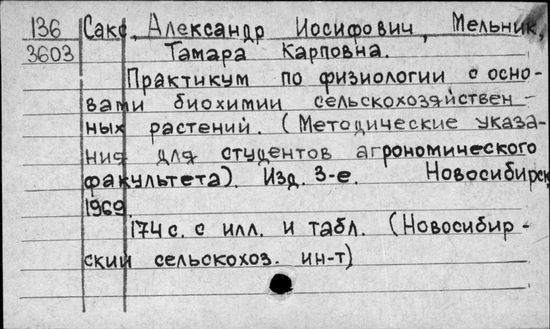 136 Сакс, Александр Иосифович, Мельник,
3603 Тамара Карповна.
Практикум по физиологии с осно-
вами биохимии сельскохозяйствен-
ных растений. (Методические указа-
ния для студентов агрономического
факультета). Изд. 3-е. Новосибирск
1969.
174 с. с илл. и табл. (Новосибир-
ский сельскохоз. ин-т)